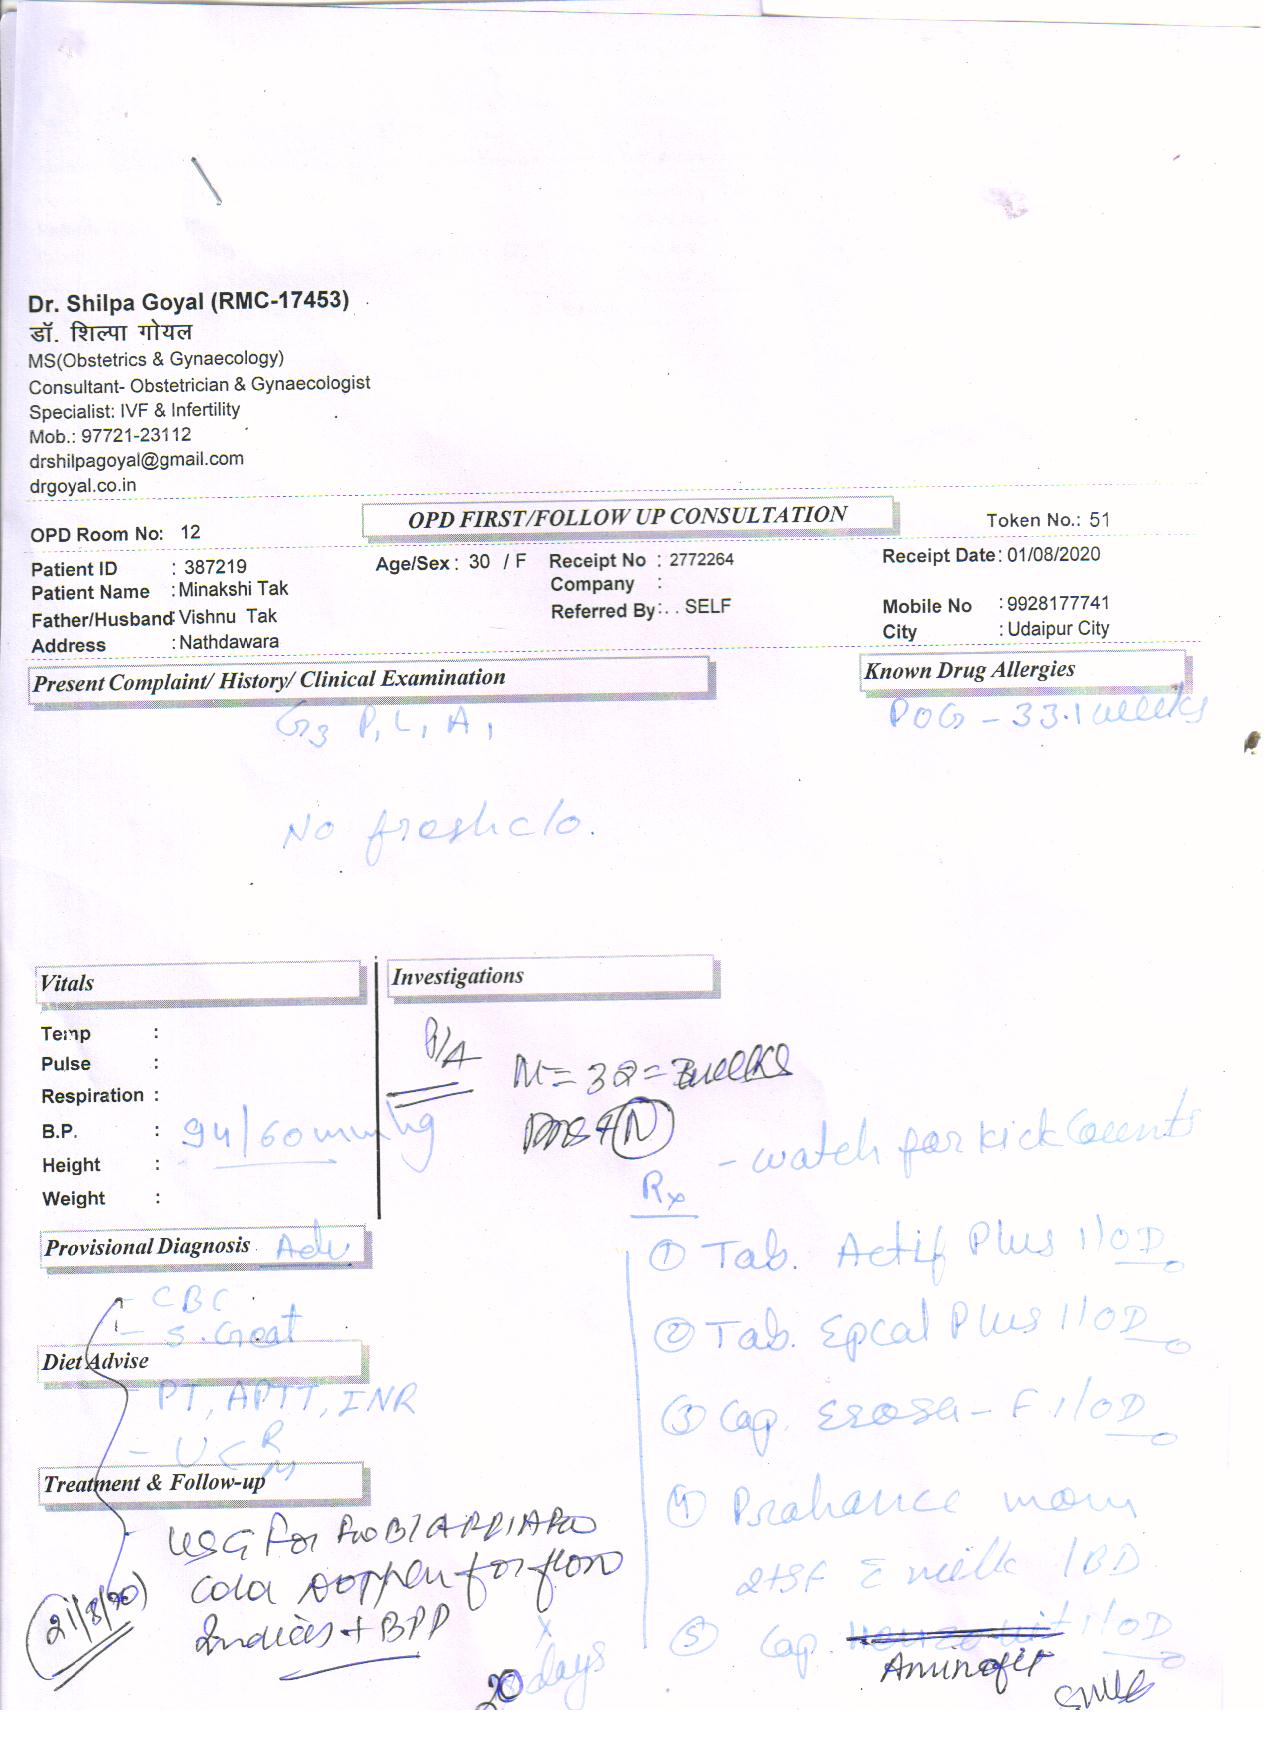 Dr. Shilpa Goyal (RMC-17453)
डॉ. शिल्पा गोयल
MS(Obstetrics & Gynaecology)
Consultant- Obstetrician & Gynaecologist
Specialist: IVF & Infertility
Mob.: 97721-23112
drshilpagoyal@gmail.com
drgoyal.co.in
OPD Room No: 12
OPD FIRST/FOLLOW UP CONSULTATION
Token No.: 51
Patient ID : 387219
Age/Sex : 30 / F
Receipt No : 2772264
Receipt Date: 01/08/2020
Patient Name : Minakshi Tak
Company :
Father/Husband: Vishnu Tak
Referred By: . . SELF
Mobile No : 9928177741
Address : Nathdawara
City : Udaipur City
Present Complaint/ History/ Clinical Examination
Known Drug Allergies
G3 P1 L1 A1
POG - 33.1 weeks
No fresh c/o.
Vitals
Investigations
Temp :
Pulse :
Respiration :
B.P. : 94/60 mmhg
Height :
Weight :
P/A
- watch for kick counts
Rx
Provisional Diagnosis Adv
- CBC
Diet Advise
- PT, APTT, INR
- UC R/M
Treatment & Follow-up
USG for
Color Doppler for flow
Indices + BPP
21/8/20
① Tab. Actif Plus 1 OD
② Tab. Epcal Plus 1 OD
③ Cap. - F 1 OD
④ Prohance mom
2tsf c milk 1 BD
⑤ Cap. 1 OD
Aminofit
x
20 days